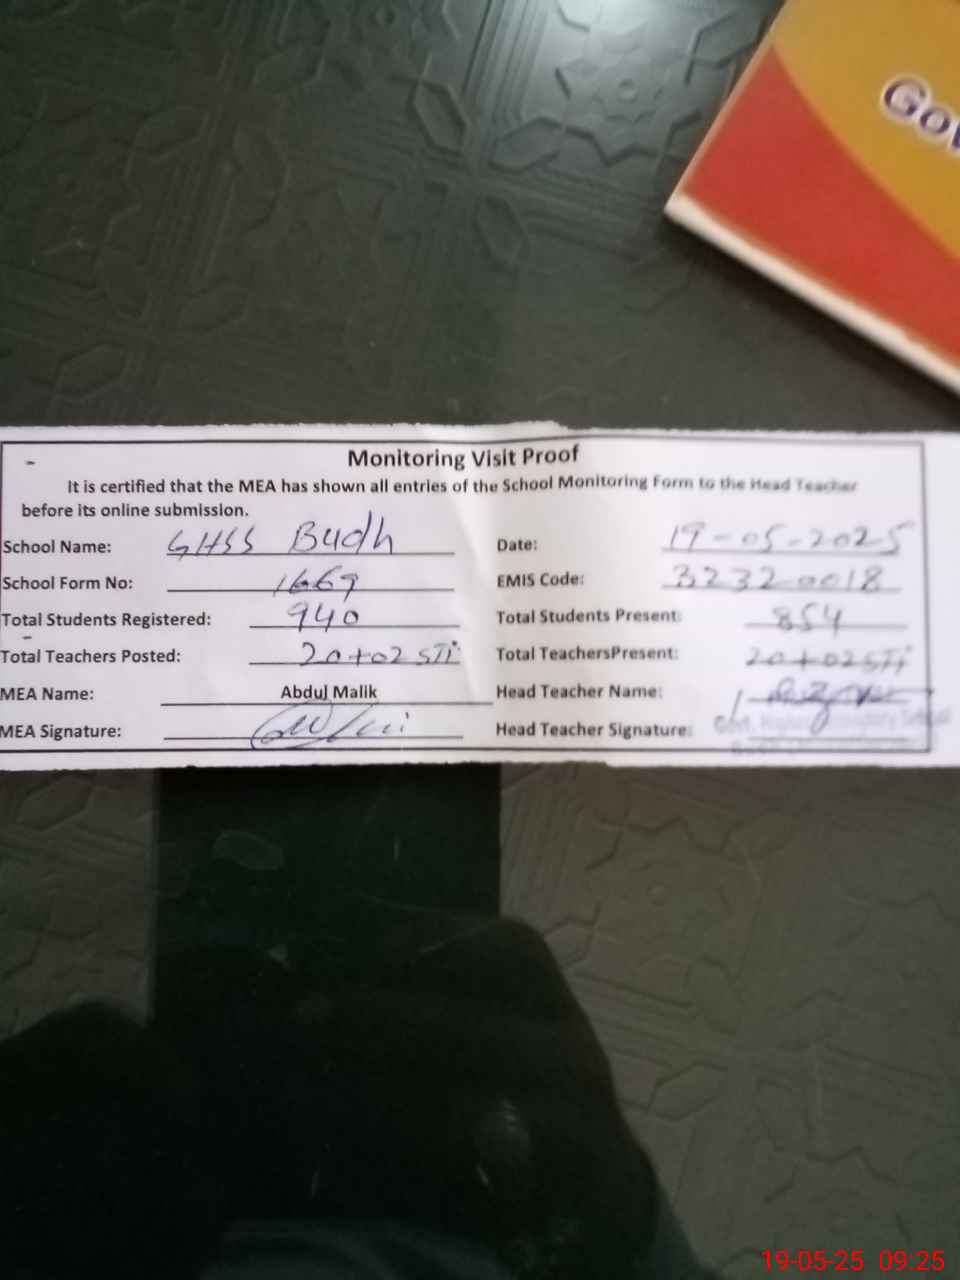 Gov
Monitoring Visit Proof
It is certified that the MEA has shown all entries of the School Monitoring Form to the Head Teacher
before its online submission.
School Name: GHSS Budh Date: 19-05-2025
School Form No: 1669 EMIS Code: 32320018
Total Students Registered: 940 Total Students Present: 854
Total Teachers Posted: 20+02 STi Total TeachersPresent: 20+02 STi
MEA Name: Abdul Malik Head Teacher Name:
MEA Signature: Head Teacher Signature:
Govt. Higher Secondary School
19-05-25 09:25